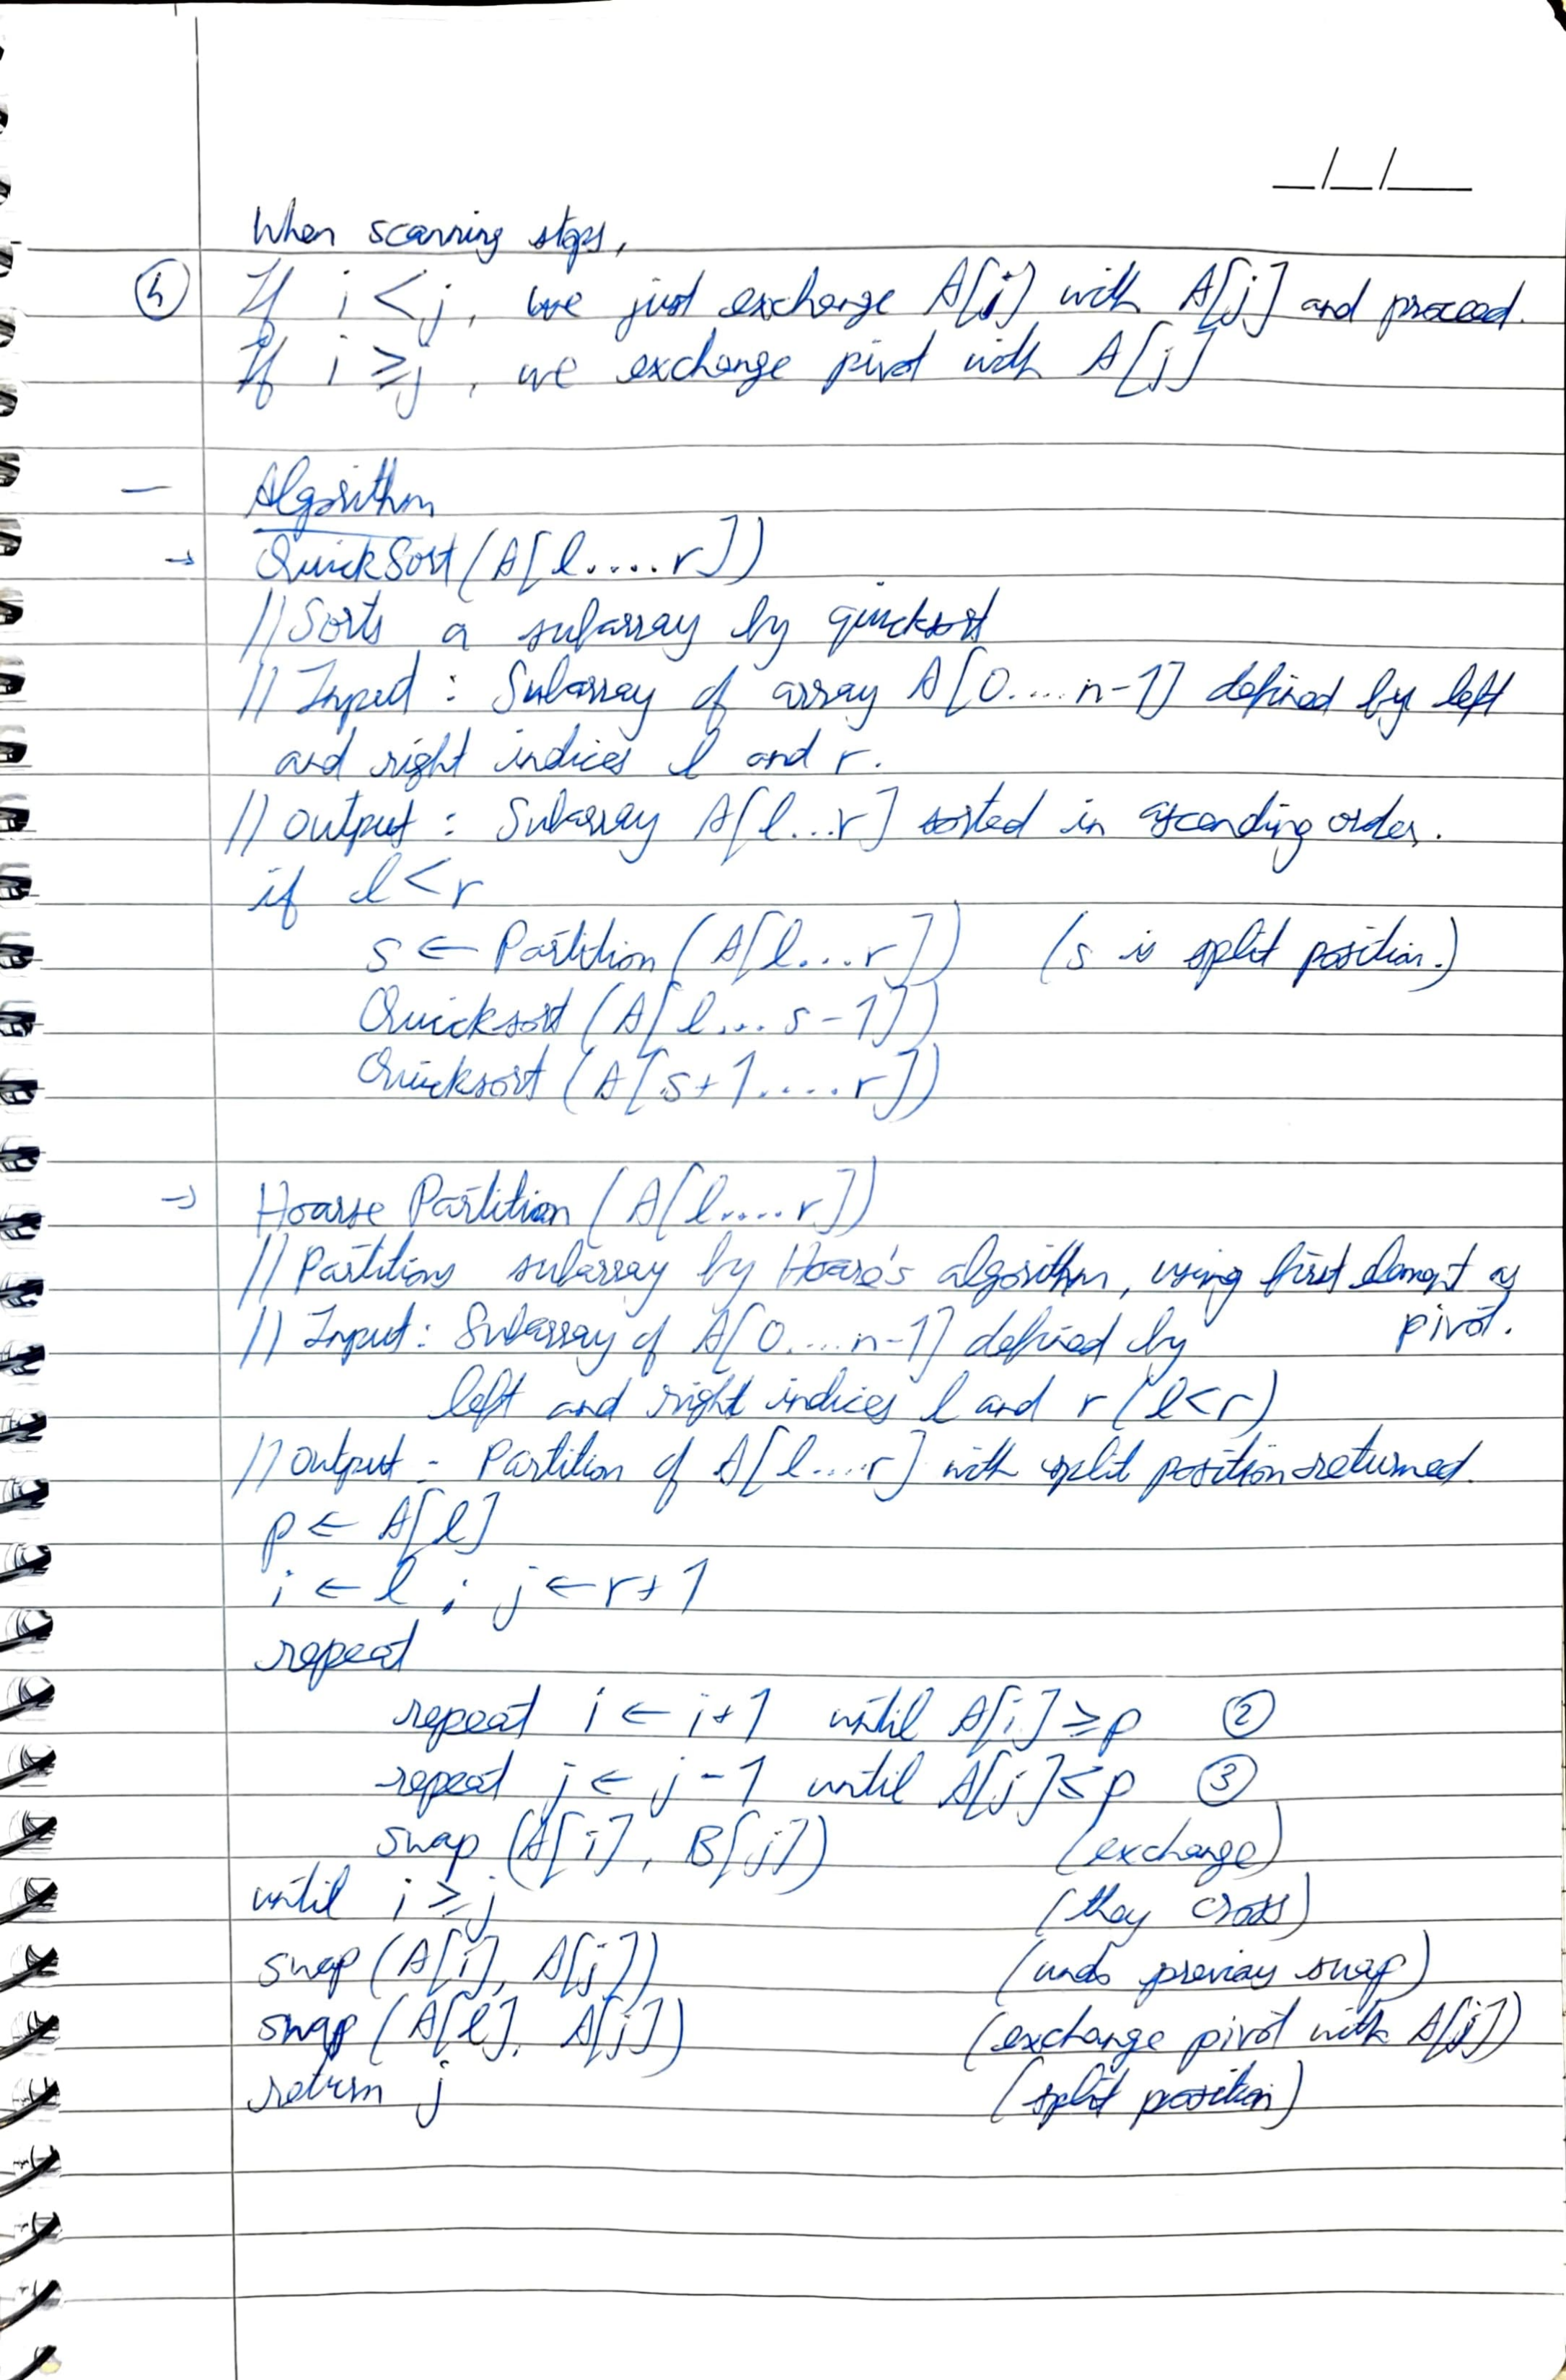 _/_/_
When scanning stops,
④ If i < j, we just exchange A[i] with A[j] and proceed.
If i ≥ j, we exchange pivot with A[j]
— Algorithm
→ QuickSort (A[l.....r])
// Sorts a subarray by quicksort
// Input : Subarray of array A[0....n-1] defined by left
and right indices l and r.
// Output : Subarray A[l...r] sorted in ascending order.
if l < r
s ← Partition (A[l....r]) (s is split position.)
Quicksort (A[l... s-1])
Quicksort (A[s+1.....r])
→ Hoarse Partition (A[l.....r])
// Partitions subarray by Hoare's algorithm, using first element as
pivot.
// Input : Subarray of A[0....n-1] defined by
left and right indices l and r (l<r)
// Output - Partition of A[l.....r] with split position returned.
p ← A[l]
i ← l ; j ← r+1
repeat
repeat i ← i+1 until A[i] ≥ p ②
repeat j ← j-1 until A[j] ≤ p ③
swap (A[i], B[j]) (exchange)
until i ≥ j (they cross)
swap (A[i], A[j]) (undo previous swap)
swap (A[l], A[j]) (exchange pivot with A[j])
return j (split position)